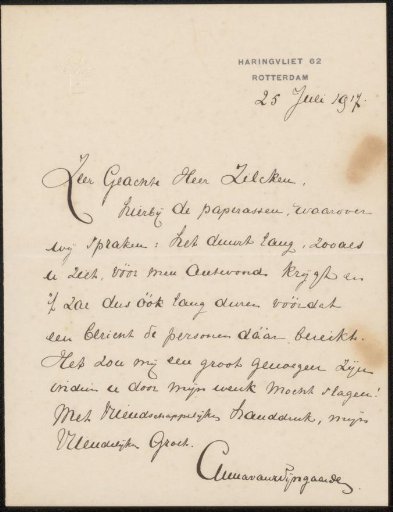 HARINGVLIET 62
ROTTERDAM
25 Juli 1917.
Zeer Geachte Heer Zilcken,
hierbij de paperassen, waarover
wij spraken: het duurt lang, zooals
u ziet, vóór men antwoord krijgt en
't zal dus óók lang duren vóórdat
een bericht de personen dáár bereikt.
Het zou mij een groot genoegen zijn
indien u door mijn werk mocht slagen!
Met vriendschappelijken handdruk, mijn
Vriendelijke Groet.
Anna van Wijngaarden